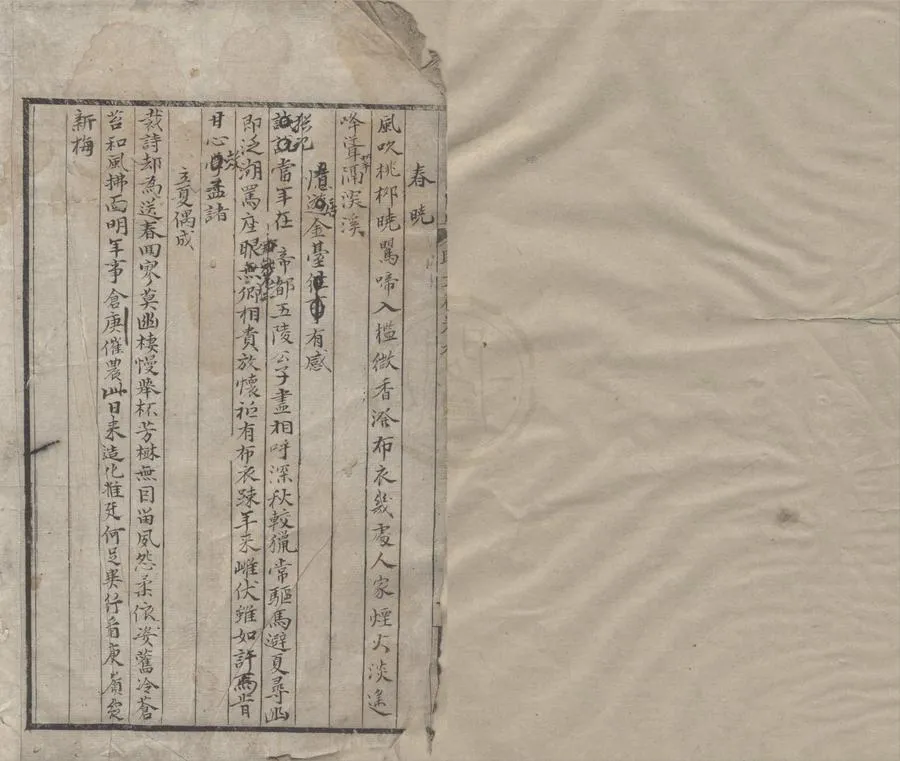 春曉
風吹桃柳曉鶯啼入檻微香浴布衣幾處人家煙火淡遙
峰聳隔淡溪
憶遊金臺有感
猶記當年在帝都五陵公子盡相呼深秋較獵常驅馬避夏尋幽
即泛湖罵座眼無卿相貴放懷祗有布衣疎年來雌伏雖如許焉肯
甘心學孟諸
立夏偶成
裁詩却為送春回寥莫幽棲慢舉杯芳樹無因留夙怨柔依姿舊冷蒼
苔和風拂面明年事倉庚催農此日來造化推廷何足異行看庾嶺發
新梅